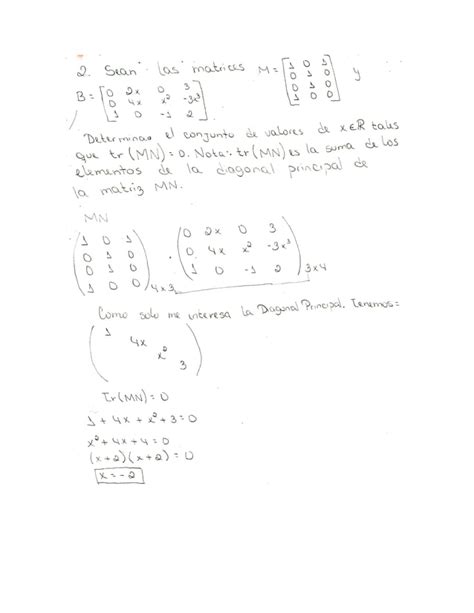 2. Sean las matrices M = [ 1 0 1 ; 0 1 0 ; 0 1 0 ; 1 0 0 ] y
B = [ 0 2x 0 3 ; 0 4x x² -3x³ ; 1 0 -1 2 ].
Determinar el conjunto de valores de x∈R tales
que tr(MN)=0. Nota: tr(MN) es la suma de los
elementos de la diagonal principal de
la matriz MN.
MN
( 1 0 1 ; 0 1 0 ; 0 1 0 ; 1 0 0 )4x3 · ( 0 2x 0 3 ; 0 4x x² -3x³ ; 1 0 -1 2 )3x4
Como solo me interesa la Diagonal Principal. Tenemos:
( 1
4x
x²
3 )
Tr(MN)=0
1 + 4x + x² + 3 = 0
x² + 4x + 4 = 0
(x+2)(x+2) = 0
x = -2